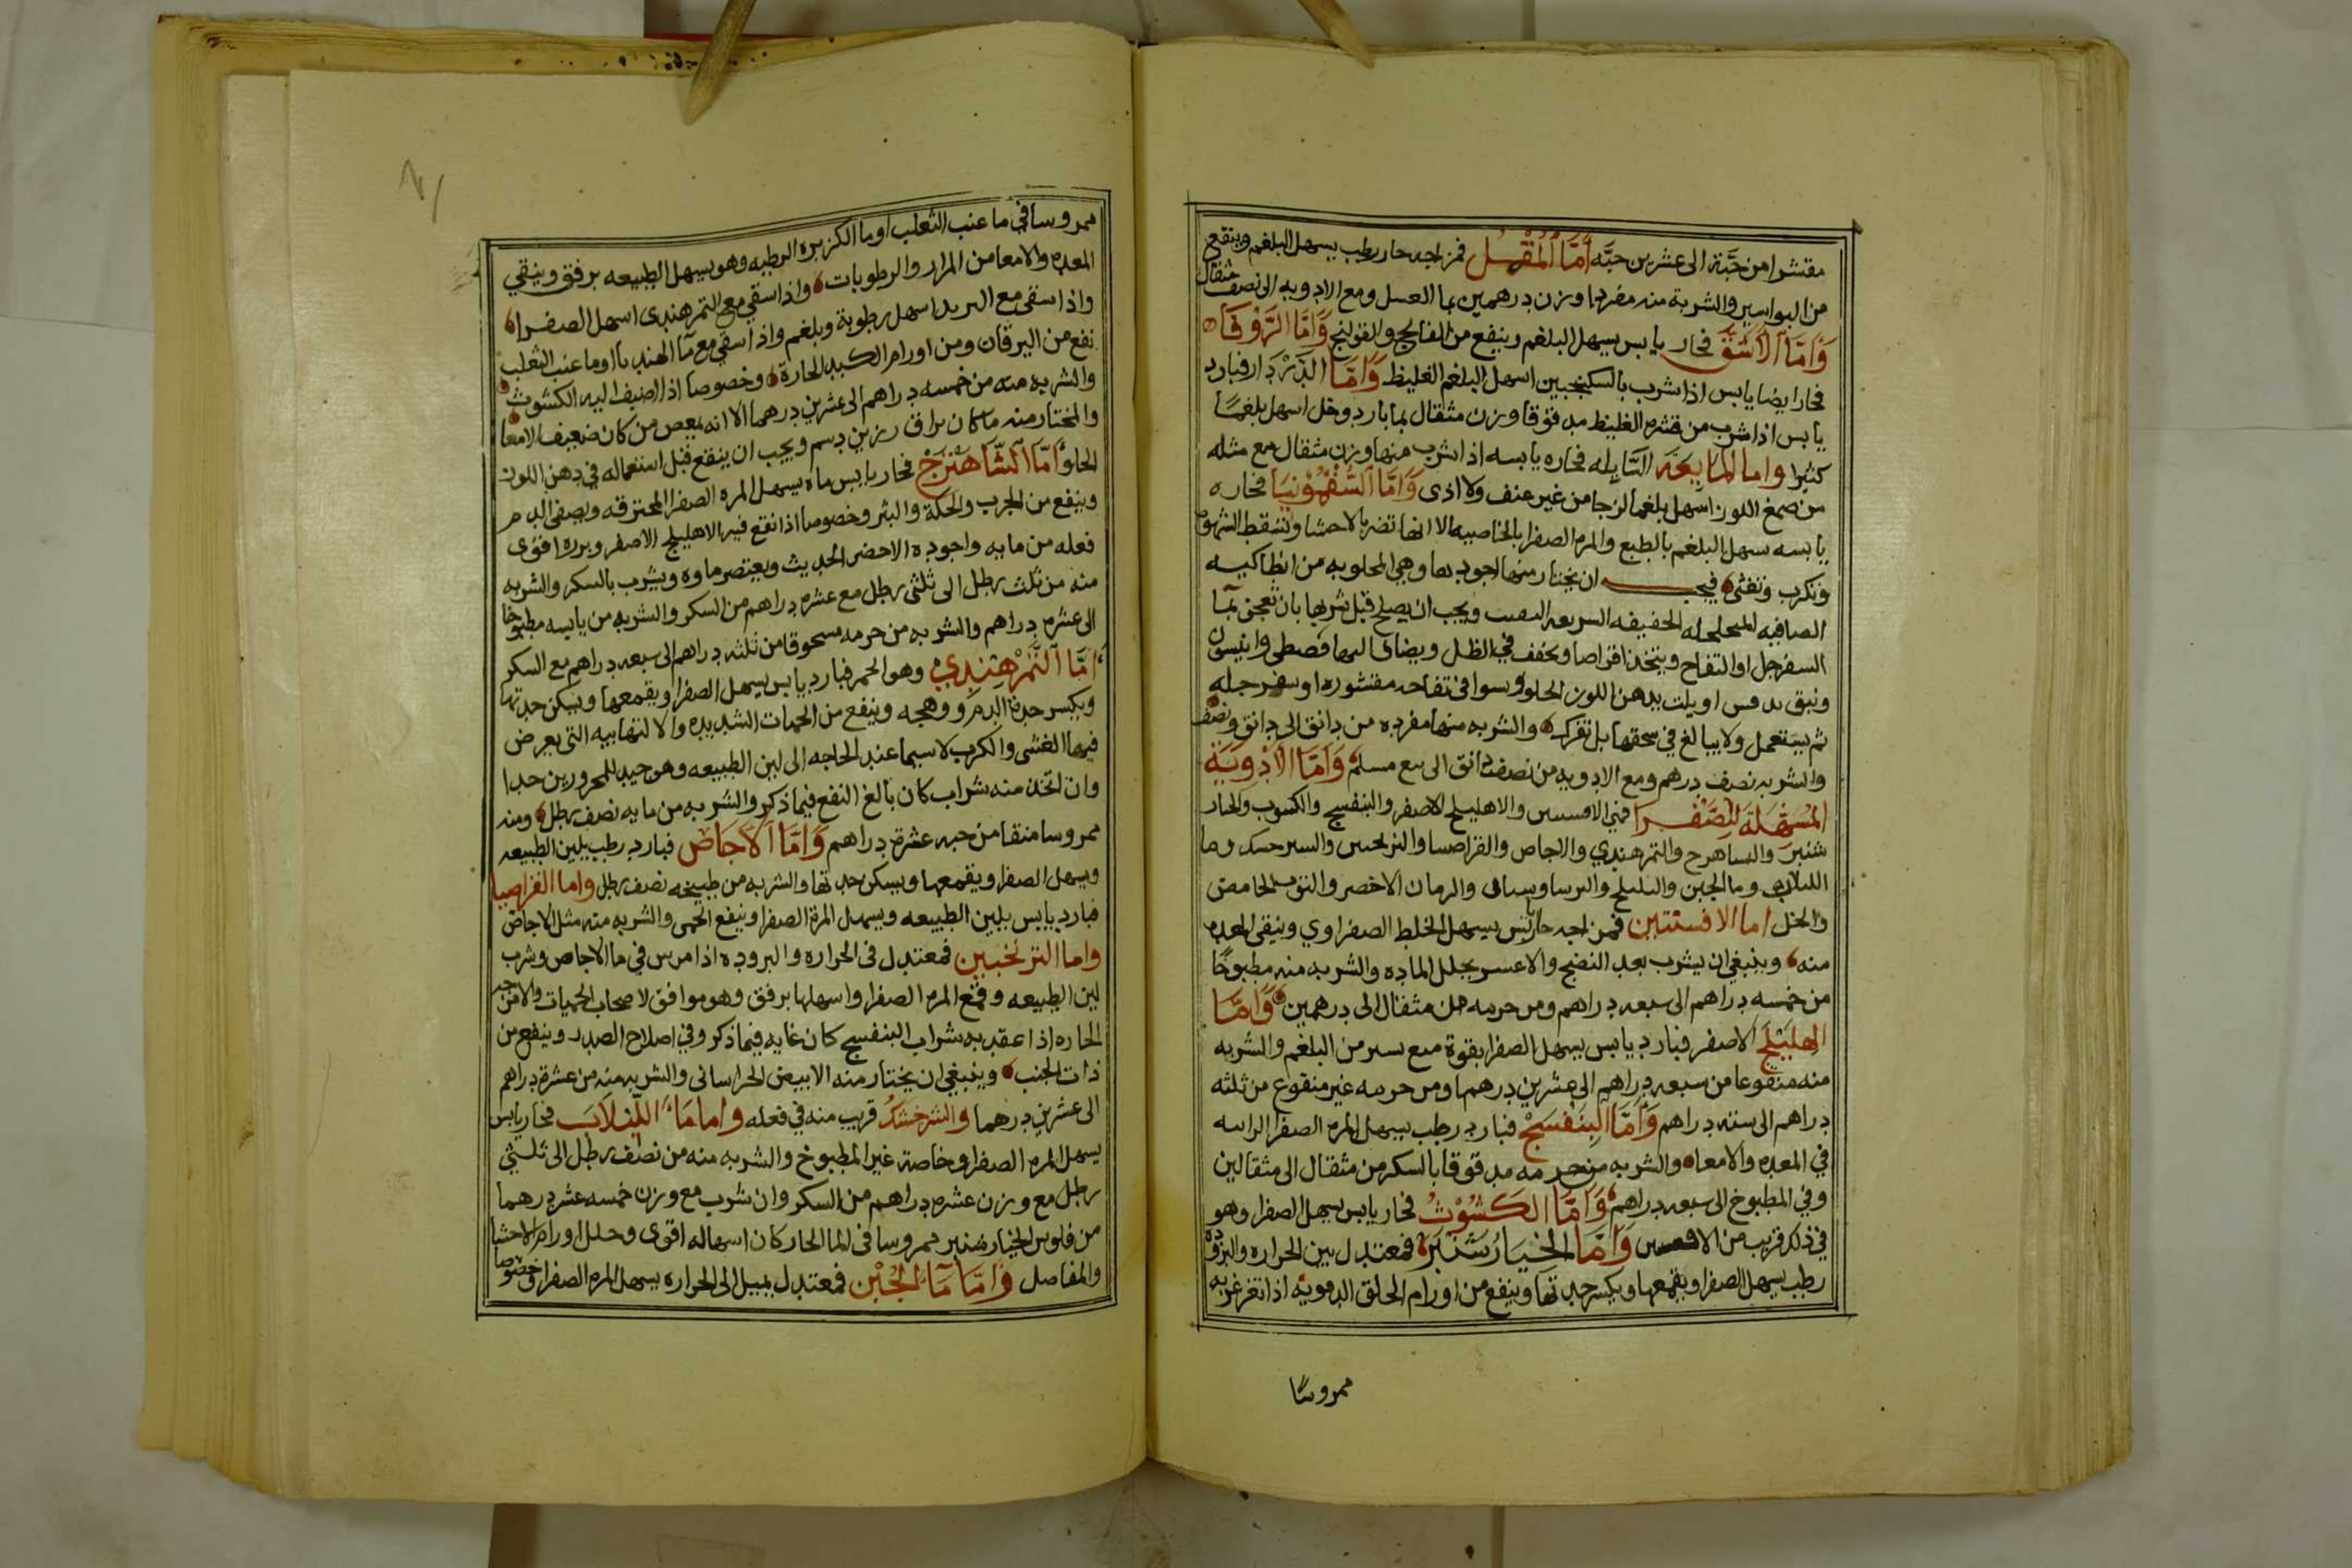 مقتشرا من حبَّة الى عشرين حبَّه أَمَّا الْمُقْل فمزاجه حار رطب يسهل البلغم وينفع
من البواسير والشربة منه مفردا وزن درهمين بما العسل ومع الادويه الى نصف مثقال
وَأَمَّا الأُشَّق فحار يابس يسهل البلغم وينفع من الفالج والقولنج وَأَمَّا الزُّوفَا
فحار ايضا يابس اذا شرب بالسكنجبين اسهل البلغم الغليظ وَأَمَّا الدَّرْدَار فبارد
يابس اذا شرب من قشره الغليظ مدقوقا وزن مثقال بما بارد وخل اسهل بلغمًا
كثيرا واما المَايعَه السَّايله فحاره يابسه اذا شرب منها وزن مثقال مع مثله
من صمغ اللوز اسهل بلغما لزجا من غير عنف ولا اذى وَأَمَّا السَّقَمُونيَا فحاره
يابسه تسهل البلغم بالطبع والمره الصفرا بالخاصيه الا انها تضر بالاحشا وتسقط الشهوه
وتكرب وتغثى فيجب ان يختار منها اجودها وهي المجلوبه من انطاكيه
الصافيه المتخلخله الخفيفه السريعه التفتت ويجب ان يصلح قبل شربها بان تعجن بما
السفرجل او التفاح ويتخذ اقراصا ويجفف في الظل ويضاف اليها مصطكى وانيسون
اويلت بدهن اللوز الحلو وتشوا في تفاحه مقشوره او سفرجله
ثم يستعمل ولا يبالغ في سحقها بل تفرك والشربه منها مفرده من دانق الى دانق ونصف
والشربه نصف درهم ومع الادويه من نصف دانق الى وَأَمَّا الأَدْوِيَةِ
المُسْهِلَة لِلصَّفْرا فهي الافسنتين والاهليلج الاصفر والبنفسج والكشوث والخيار
شنبر والشاهترج والتمرهندي والاجاص والقراصيا والترنجبين والشيرخشك وما
اللبلاب وما الجبن والرمان الاخضر والتوت الحامض
والخل اما الافسنتين فمزاجه حار يابس يسهل الخلط الصفراوي وينقي المعده
منه وينبغي ان يشرب بعد النضج والا عسر تحلل الماده والشربه منه مطبوخًا
من خمسه دراهم الى سبعه دراهم ومن جرمه من مثقال الى درهمين وَأَمَّا
الهليلج الاصفر فبارد يابس يسهل الصفرا بقوة مع يسير من البلغم والشربه
منه منقوعا من سبعه دراهم الى عشرين درهما ومن جرمه غير منقوع من ثلثه
دراهم الى سته دراهم وَأَمَّا الْبَنَفْسَجْ فبارد رطب يسهل المره الصفرا
في المعده والامعا والشربه من جرمه مدقوقا بالسكر من مثقال الى مثقالين
وفي المطبوخ الى سبعه دراهم وَأَمَّا الكَشُوْثُ فحار يابس يسهل الصفرا وهو
في ذلك قريب من الافسنتين وَأَمَّا الخِيَارُ شَنْبَرْ فمعتدل بين الحراره والبروده
رطب يسهل الصفرا ويقمعها ويكسر حدتها وينفع من اورام الحلق الدمويه اذا تغرغر به
ممروسًا
ممروسا في ما عنب الثعلب او ما الكزبره الرطبه وهو يسهل الطبيعه برفق وينقي
المعده والامعا من المرار والرطوبات واذا سقي مع التمرهندي اسهل الصفرا
واذا سقي مع التربد اسهل رطوبة وبلغم واذا سقي مع ما الهندبا او ما عنب الثعلب
نفع من اليرقان ومن اورام الكبد الحارة وخصوصا اذا اضيف اليه الكشوث
والشربه منه من خمسه دراهم الى عشرين درهما الا انه يمغص من كان ضعيف الامعا
والمختار منه ما كان براق رزين دسم ويجب ان ينقع قبل استعماله في دهن اللوز
الحلو أَمَّا الشَّاهْتَرَجْ فحار يابس ماه يسهل المره الصفرا المحترقه ويصفي الدم
وينفع من الجرب والحكة والبثر وخصوصا اذا نقع فيه الاهليلج الاصفر وبزره اقوى
فعله من مايه واجوده الاخضر الحديث ويعتصر ماوه ويشرب بالسكر والشربه
منه من ثلث رطل الى ثلثى رطل مع عشره دراهم من السكر والشربه من يابسه مطبوخا
الى عشره دراهم والشربه من جرمه مسحوقا من ثلثه دراهم الى سبعه دراهم مع السكر
أمَّا التَّمْرهِنْدِي وهو الحمر فبارد يابس يسهل الصفرا ويقمعها ويسكن حدتها
ويكسر حدة الدم ووهجه وينفع من الحميات الشديده والالتهابيه التى يعرض
فيها الغشى والكرب لا سيما عند الحاجه الى لين الطبيعه وهو جيد للمحرورين جدا
وان اتخذ منه شراب كان بالغ النفع فيما ذكر والشربه من مايه نصف رطل ومنه
ممروسا منقا من حبه عشرة دراهم وَأَمَّا الأجَاص فبارد رطب يلين الطبيعه
ويسهل الصفرا ويقمعها ويسكن حدتها والشربه من طبيخه نصف رطل واما القراصيا
فبارد يابس يلين الطبيعه ويسهل المرة الصفرا وينفع الحمى والشربه منه مثل الاجاص
واما الترنجبين فمعتدل فى الحراره والبروده اذا مرس في ما الاجاص وشرب
لين الطبيعه وقمع المره الصفرا واسهلها برفق وهو موافق لاصحاب الحميات والامزجه
الحاره اذا عقد به شراب البنفسج كان غايه فيما ذكر وفي اصلاح الصدر وينفع من
ذات الجنب وينبغي ان يختار منه الابيض الخراساني والشربه منه من عشرة دراهم
الى عشرين درهما والشرخشك قريب منه في فعله واما مَاء اللّبلاَب فحار يابس
يسهل المره الصفرا وخاصة غير المطبوخ والشربه منه من نصف رطل الى ثلثي
رطل مع وزن عشره دراهم من السكر وان شرب مع وزن خمسه عشر درهما
من فلوس الخيار شنبر ممروسا فى الما الحار كان اسهاله اقوى وحلل اورام الاحشا
والمفاصل وَامّا مَاء الجُبْن فمعتدل يميل الى الحراره يسهل المره الصفرا وخصوصا